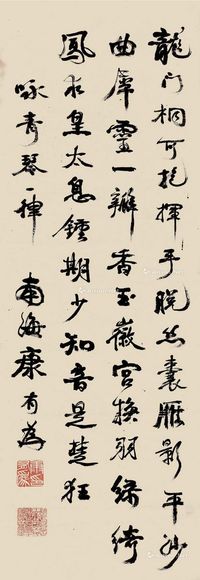 龍门桐可抱揮手脱絲囊雁影平沙
曲犀靈一瓣香玉徽宫换羽綠綺
鳳求皇太息鍾期少知音是楚狂
咏青琴一律 南海康有為